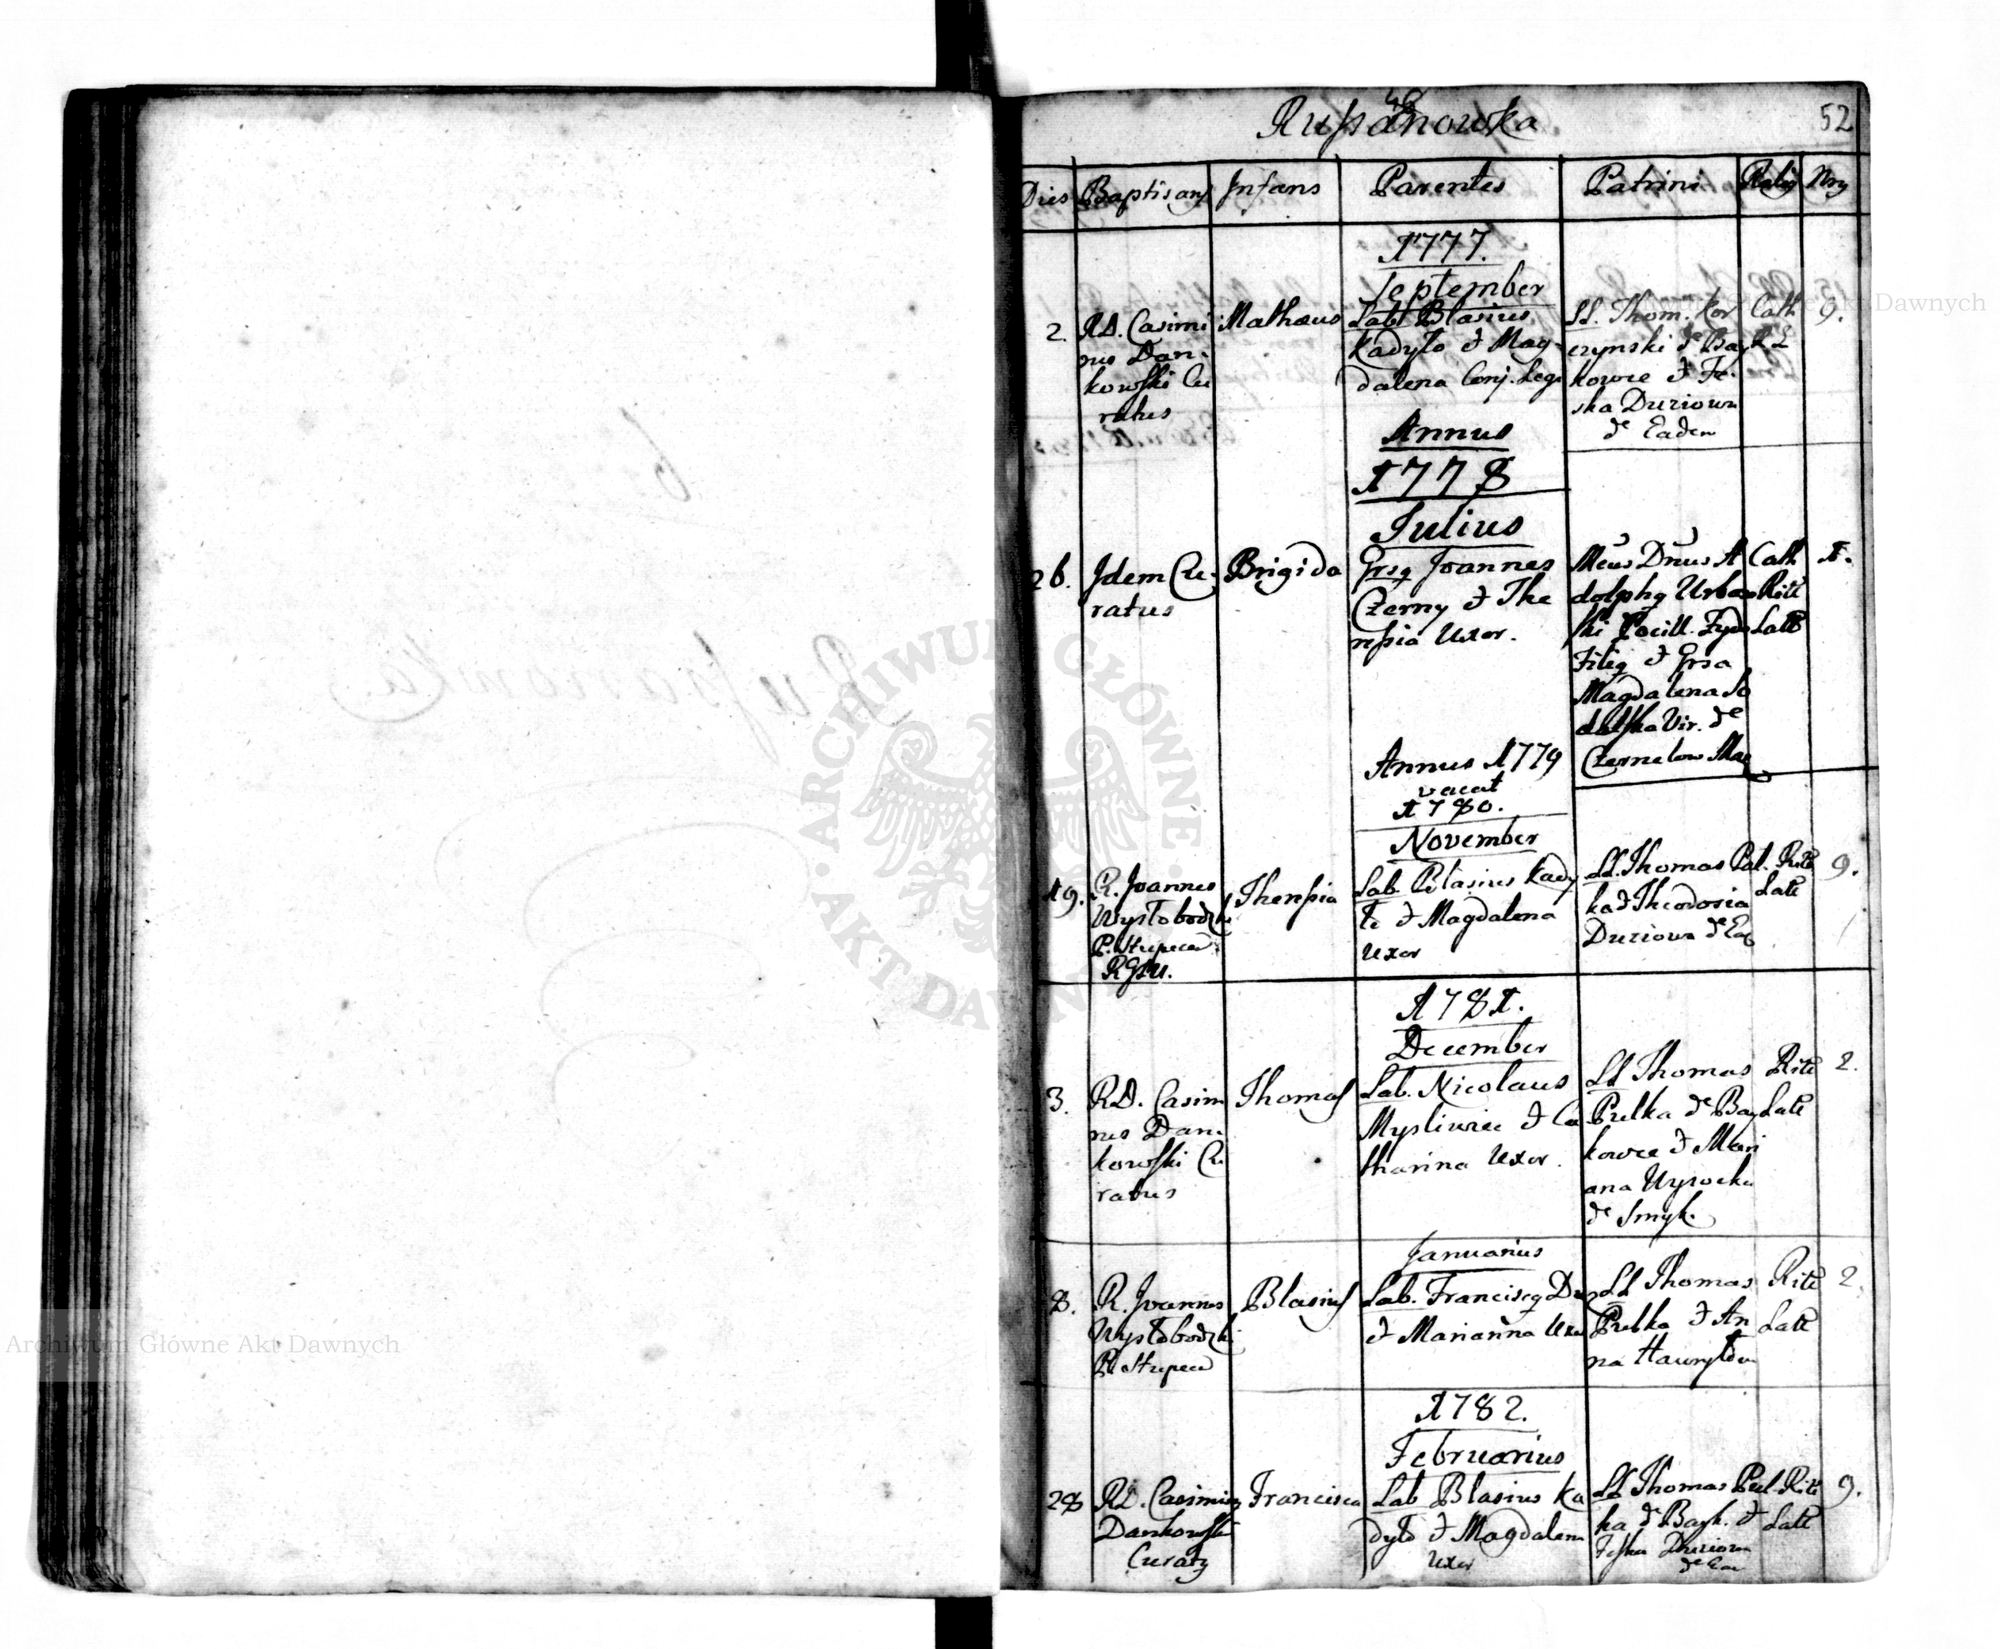 48
Rußanowka
52
Dies Baptisans Infans Parentes Patrini Relig Nrus
1777.
September
2. RD. Casimi
rus Dan-
kowski Cu
ratus
Mathæus
Lab. Blasius
Kadyło & Mag-
dalena Conj. Leg.
LL. Thom. Kor
czynski de Bay
kowce & Fe-
ska Duziowa
de Eadem
Cath
R L
9.
Annus
1778
Julius
26. Idem Cu-
ratus
Brigida
Grsq Joannes
Czerny & The
resia Uxor.
Mcus Dnus A
dolphq Urban
ski Pocill.
Filiq & Grsa
Magdalena So
Vir. de
Czernelow Maz
Cath
Rite
Latt
1.
Annus 1779
vacat
1780.
November
19. R. Joannes
Wysłobodzki
P. Stupecen
Theresia
Lab. Blasius Kady
ło & Magdalena
Uxor
LL. Thomas Pal
ka & Theodosia
Duziowa de Ead
Rite
Latt
9.
1781.
December
3. RD. Casimi
rus Dan-
kowski Cu
ratus
Thomas
Lab. Nicolaus
Mysliwiec & Ca
tharina Uxor.
LL Thomas
Pulka de Bay
kowce & Mari
anna Wysocka
de Smyk.
Rite
Latt
2.
Januarius
8. R. Joannes
Wysłobodzki
P. Stupecen
Blasius
Lab. Franciscq Du
& Marianna Uxor
LL Thomas
Pulka & An
na Hawryłow
Rite
Latt
2.
1782.
Februarius
28 RD. Casimirq
Dankowski
Curatq
Francisca
Lab Blasius Ka
dyło & Magdalena
Uxor
LL Thomas Pul
ka de Bayk. &
Feska Duziowa
de Ead
Rite
Latt
9.
Rußanowka
ARCHIWUM GŁÓWNE · AKT DAWNYCH ·
Archiwum Główne Akt Dawnych
Archiwum Główne Akt Dawnych